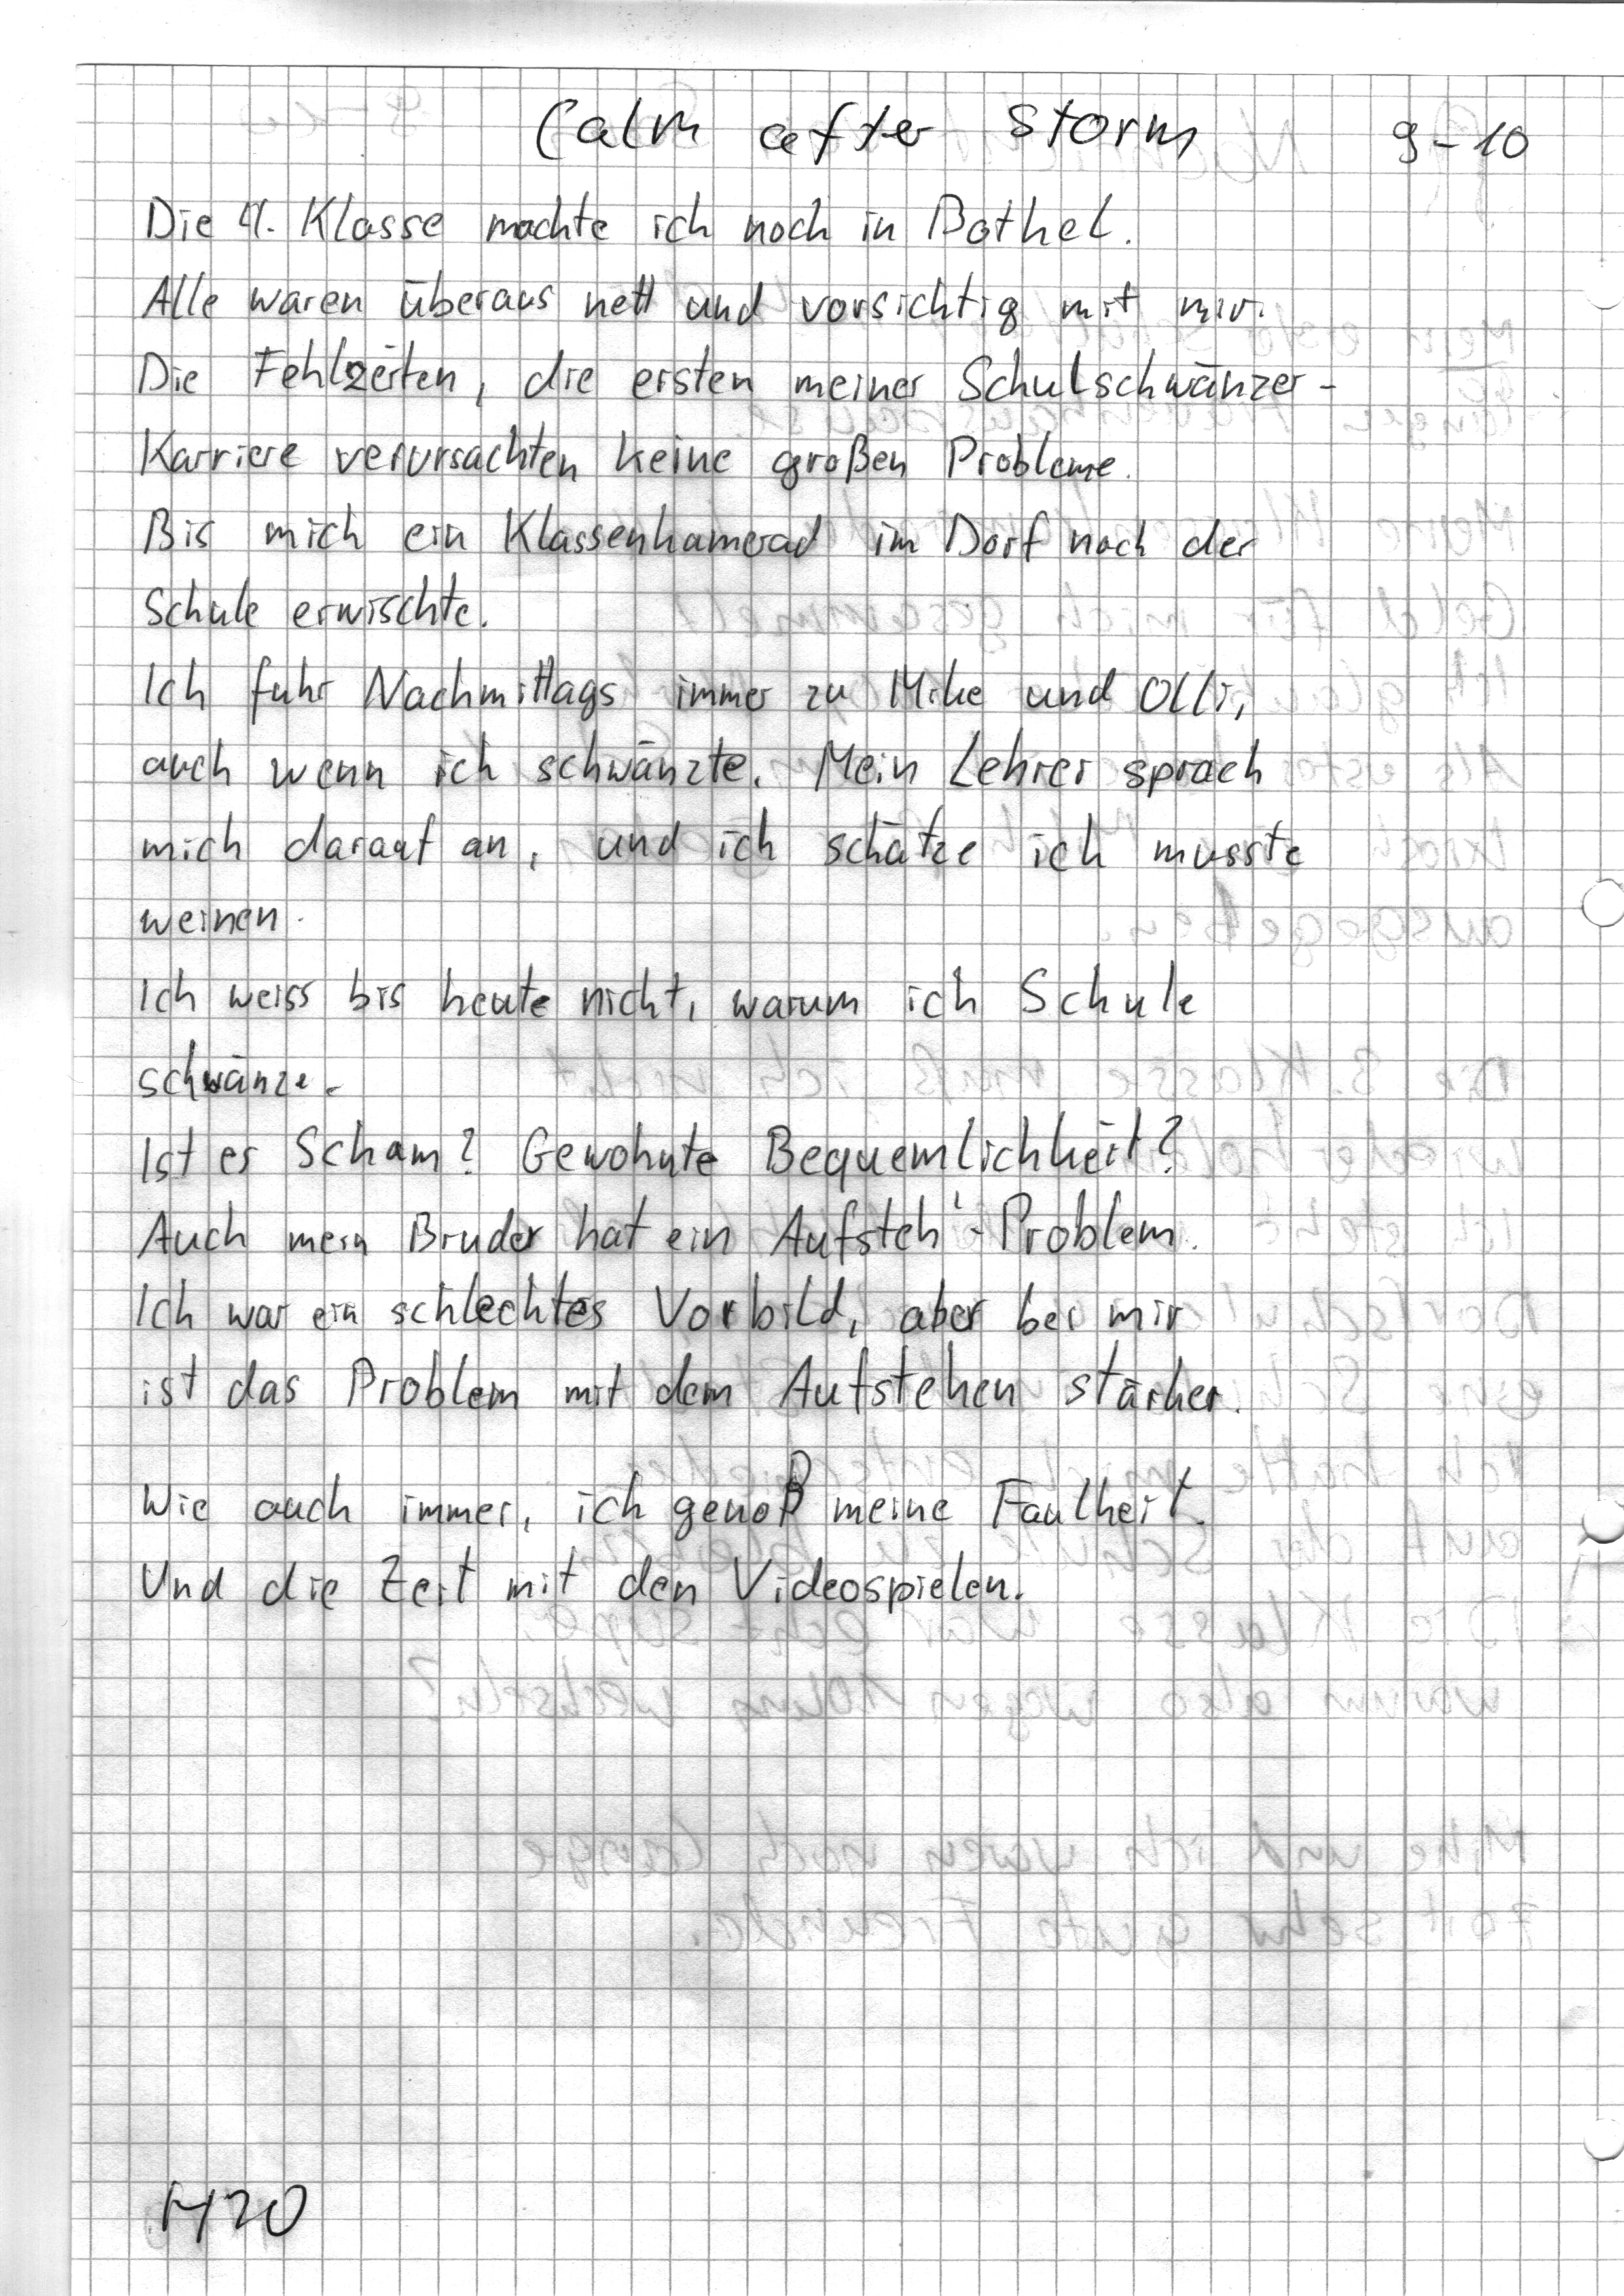 Calm after Storm 9-10
Die 4. Klasse machte ich noch in Bothel.
Alle waren überaus nett und vorsichtig mit mir.
Die Fehlzeiten, die ersten meiner Schulschwänzer-
Karriere verursachten keine großen Probleme.
Bis mich ein Klassenkamerad im Dorf nach der
Schule erwischte.
Ich fuhr Nachmittags immer zu Mike und Olli,
auch wenn ich schwänzte. Mein Lehrer sprach
mich darauf an, und ich schätze ich musste
weinen.
Ich weiss bis heute nicht, warum ich Schule
schwänze.
Ist es Scham? Gewohnte Bequemlichkeit?
Auch mein Bruder hat ein Aufsteh'-Problem.
Ich war ein schlechtes Vorbild, aber bei mir
ist das Problem mit dem Aufstehen stärker.
Wie auch immer, ich genoß meine Faulheit.
Und die Zeit mit den Videospielen.